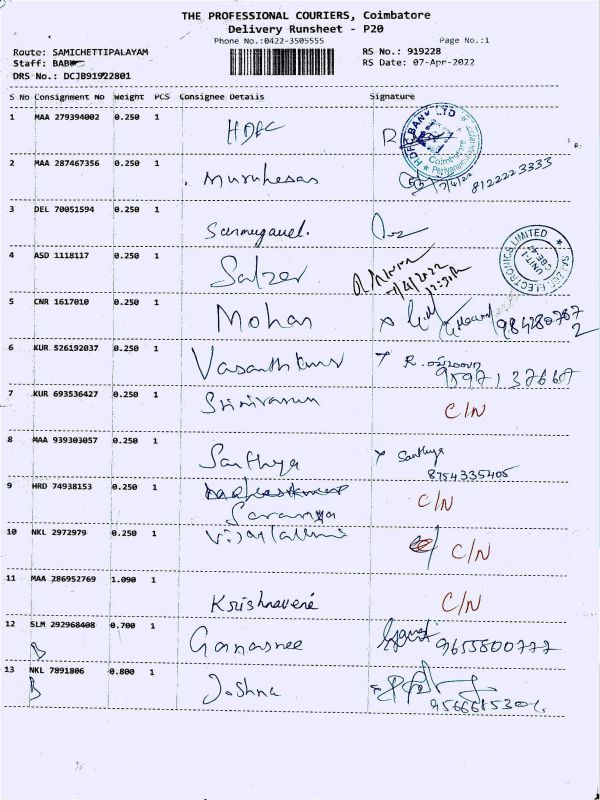 THE PROFESSIONAL COURIERS, Coimbatore
Delivery Runsheet - P20
Phone No.:0422-3505555 Page No.:1
Route: SAMICHETTIPALAYAM RS No.: 919228
Staff: BABU RS Date: 07-Apr-2022
DRS No.: DCJB91922801
S No Consignment No Weight PCS Consignee Details Signature
1 MAA 279394002 0.250 1 HDFC
HDFC BANK LTD
Coimbatore
2 MAA 287467356 0.250 1 Murukesan 7/4/22 8122223333
3 DEL 70051594 0.250 1 Sanmugavel.
4 ASD 1118117 0.250 1 Salzer 7/4/2022
SALZER ELECTRONICS LIMITED
UNIT-
CBE-47
5 CNR 1617010 0.250 1 Mohan
6 KUR 526192037 0.250 1 Vasanthkumar
7 KUR 693536427 0.250 1 Srinivasan C/N
8 MAA 939303057 0.250 1 Santhya Santhya
8754335405
9 HRD 74938153 0.250 1 C/N
Saranya
10 NKL 2972979 0.250 1 Vijaylakmi C/N
11 MAA 286952769 1.090 1 Krishnaveni C/N
12 SLM 292968408 0.700 1 9655800777
13 NKL 7891806 0.800 1 Joshna